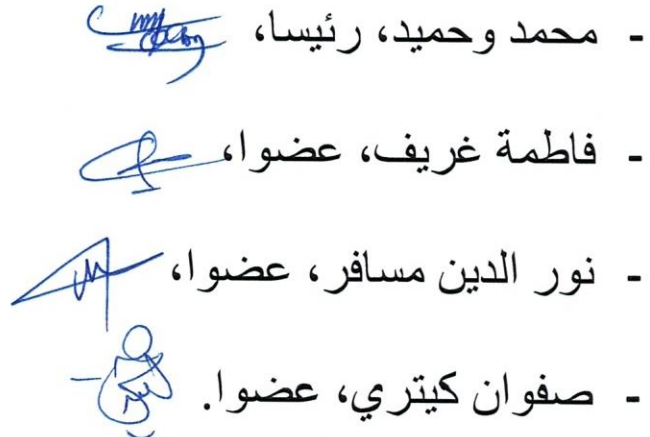 - محمد وحميد، رئيسا،
- فاطمة غريف، عضوا،
- نور الدين مسافر، عضوا،
- صفوان كيتري، عضوا.